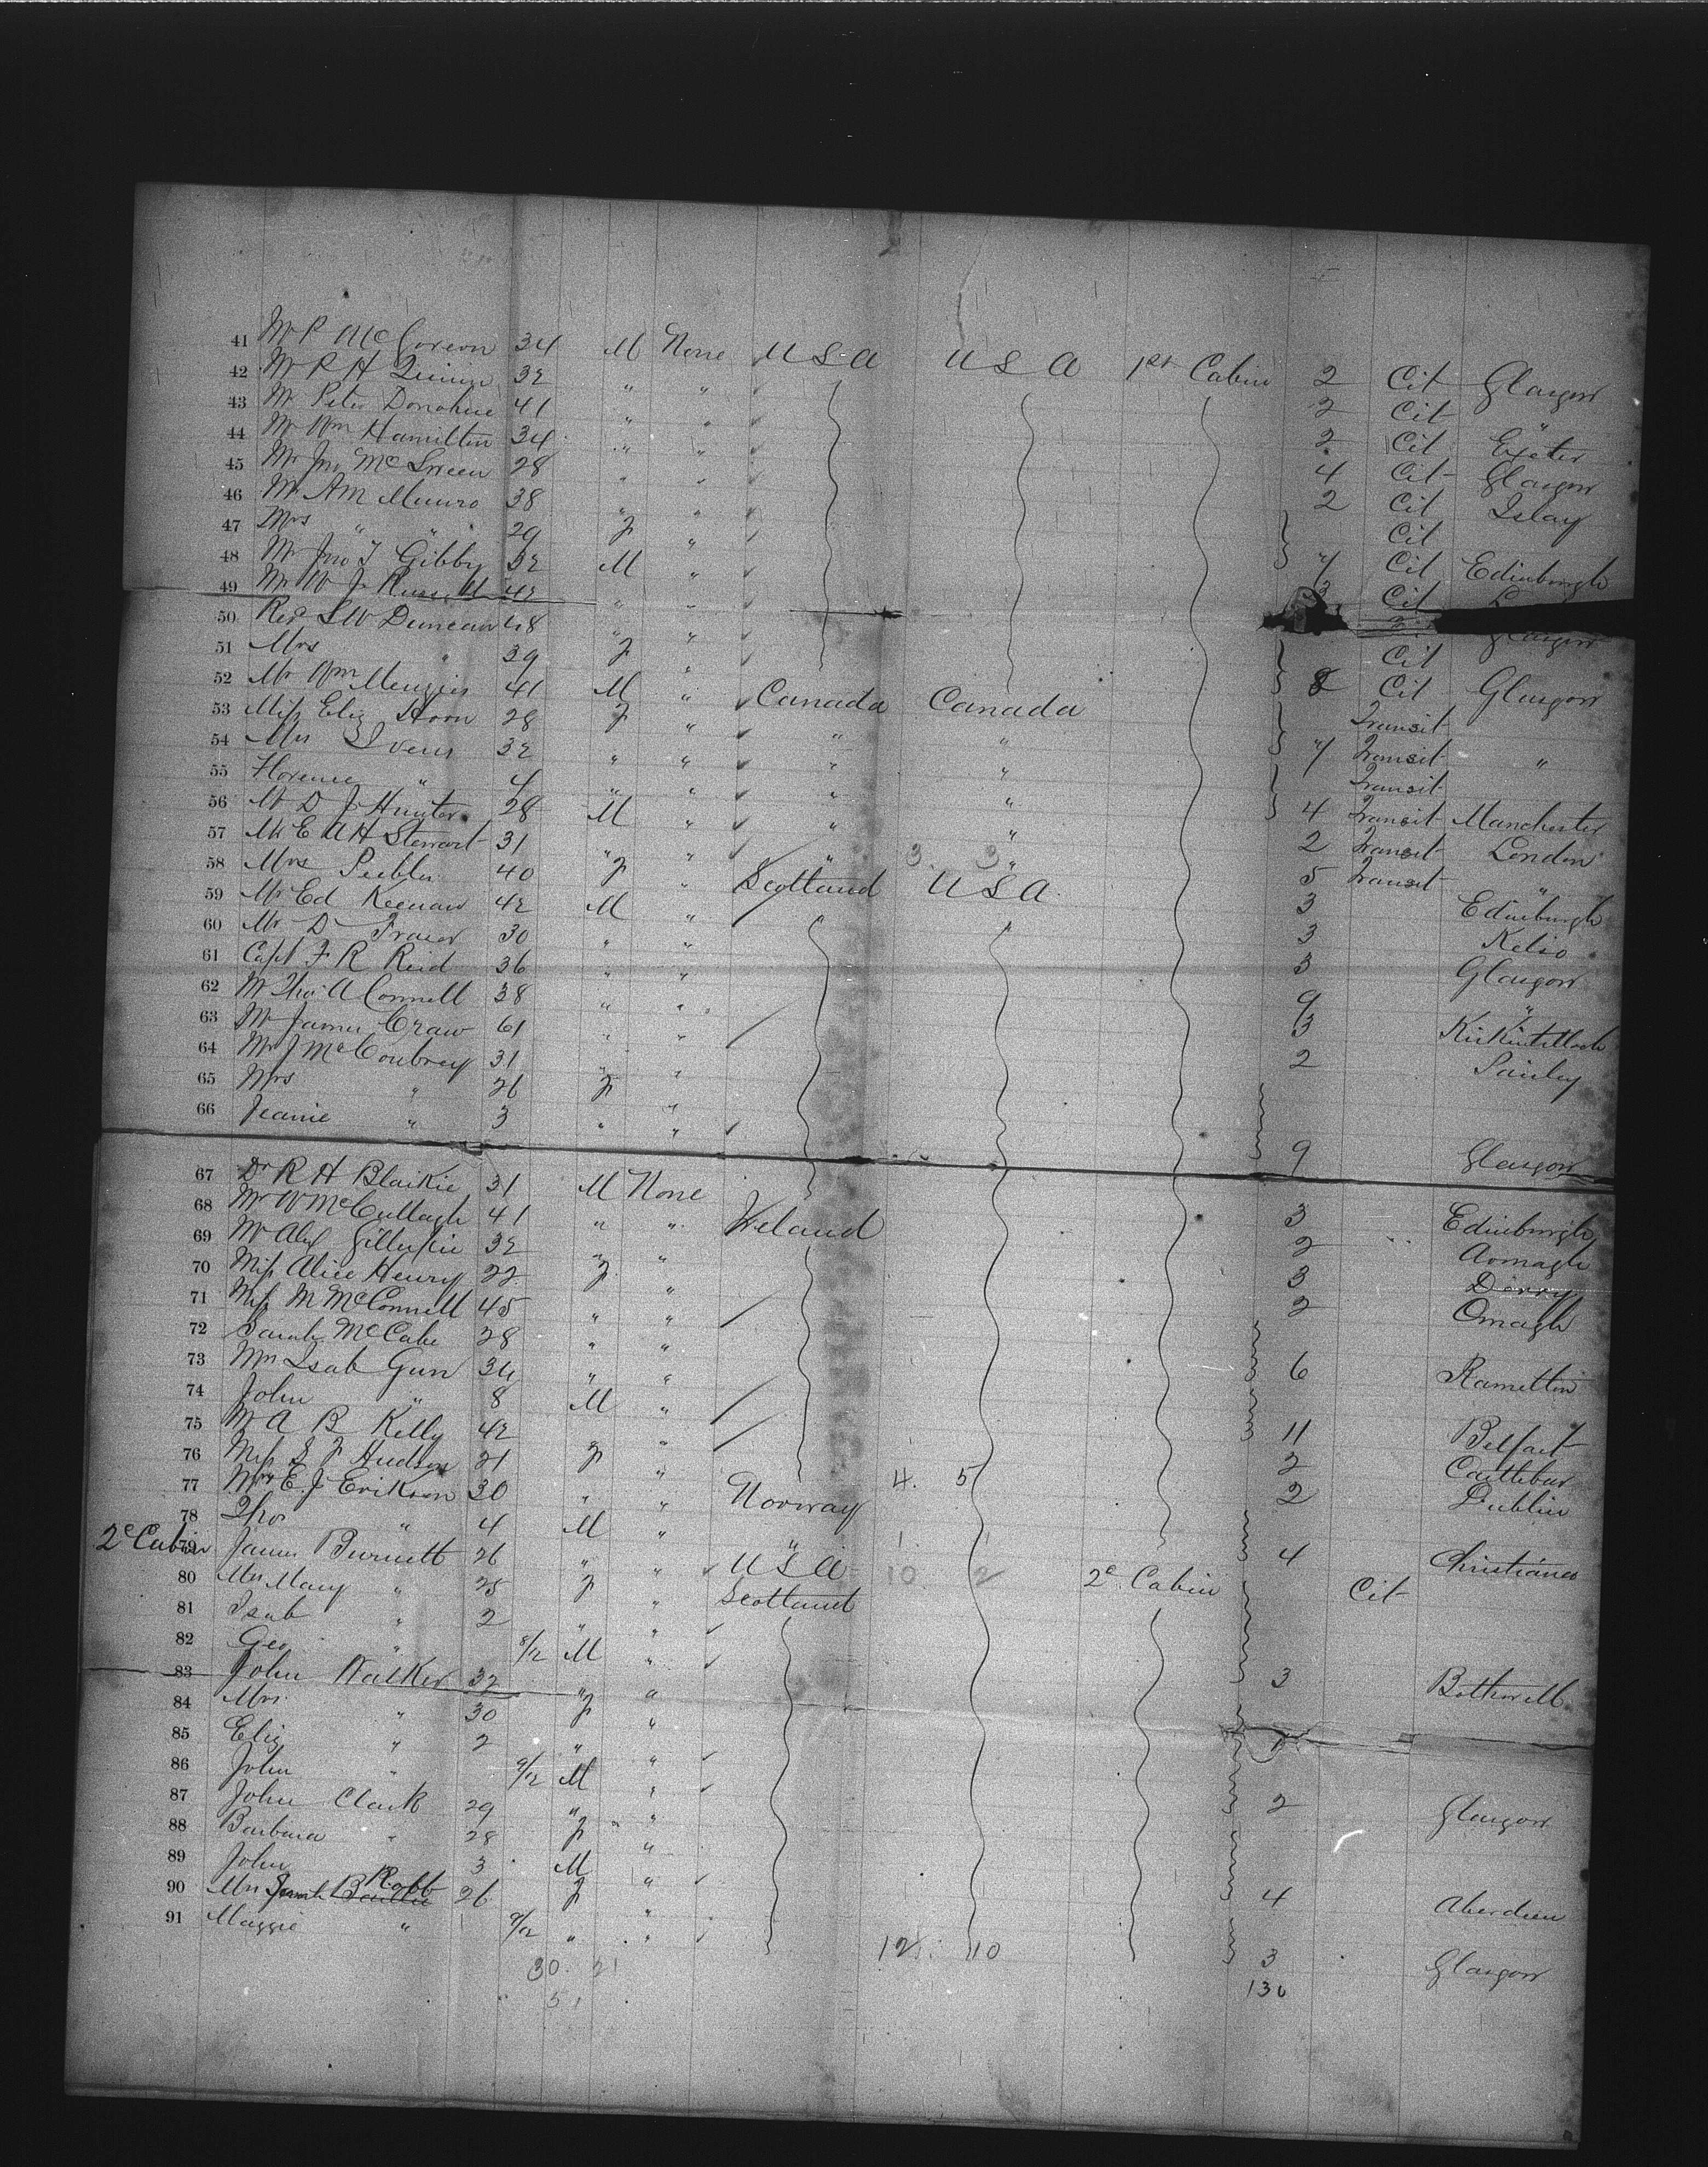 41 Mr P McCoreon 34 M None USA USA 1st Cabin 2 Cit Glasgow
42 Mr R H Quinin 32 " " 2 Cit "
43 Mr Peter Donohue 41 " " 2 Cit Exeter
44 Mr Wm Hamilton 34 " " 4 Cit Glasgow
45 Mr Jno McSween 28 " " 2 Cit Islay
46 Mr A M Munro 38 " " Cit
47 Mrs " " 29 F " 4 Cit Edinburgh
48 Mr Jno T Gibby 32 M " 3 Cit
49 Mr W J Russell 42 " " 2 Glasgow
50 Rev S W Duncan 48 " " Cit
51 Mrs " 39 F " 8 Cit Glasgow
52 Mr Wm Menzies 41 M " Canada Canada Transit
53 Miss Eliz Hoon 28 F " " " 4 Transit "
54 Mrs Ivens 32 " " " " Transit
55 Florence " 4 " " " " 4 Transit Manchester
56 Mr D J Hunter 28 M " " " 2 Transit London
57 Mr E A H Stewart 31 " " " " 3. 3 5 Transit "
58 Mrs Peebles 40 F " Scotland USA 3 Edinburgh
59 Mr Ed Keenan 42 M " 3 Kelso
60 Mr D Fraser 30 " " 3 Glasgow
61 Capt F R Reid 36 " " 9 "
62 Mr Thos A Connell 38 " " 3 Kirkintilloch
63 Mr James Craw 61 " " 2 Paisley
64 Mr J McConbrey 31 " "
65 Mrs " 26 F "
66 Jeanie " 3 " " 9 Glasgow
67 Dr R H Blaikie 31 M None 3 Edinburgh
68 Mr W McCullagh 41 " " Ireland 2 Armagh
69 Mr Alex Gillespie 32 " " 3 Derry
70 Miss Alice Henry 22 F " 2 Omagh
71 Miss M McConnell 45 " "
72 Sarah McCabe 28 " " 6 Ramelton
73 Mrs Isab Gun 34 " "
74 John " 8 M " 11 Belfast
75 Mr A B Kelly 42 " 2 Castlebar
76 Miss S F Hudson 21 F " 4. 5 2 Dublin
77 Mrs E. J Erikson 30 " " Norway
78 Thos " 4 M " " 1. 4 Christiana
2e Cabin 79 James Burnett 26 " " USA 10 2 2e Cabin Cit
80 Mrs Mary " 25 F " Scotland
81 Isab " 2 " "
82 Geo " 8/12 M " 3 Bothwell
83 John Walker 32 " "
84 Mrs " 30 F "
85 Eliz " 2 " "
86 John " 9/12 M " 2 Glasgow
87 John Clark 29 " "
88 Barbara " 28 F "
89 John " 3 M " 4 Aberdeen
90 Mrs Robb 26 F "
91 Maggie " 9/12 " " 12 10 3 Glasgow
30 21 130
51